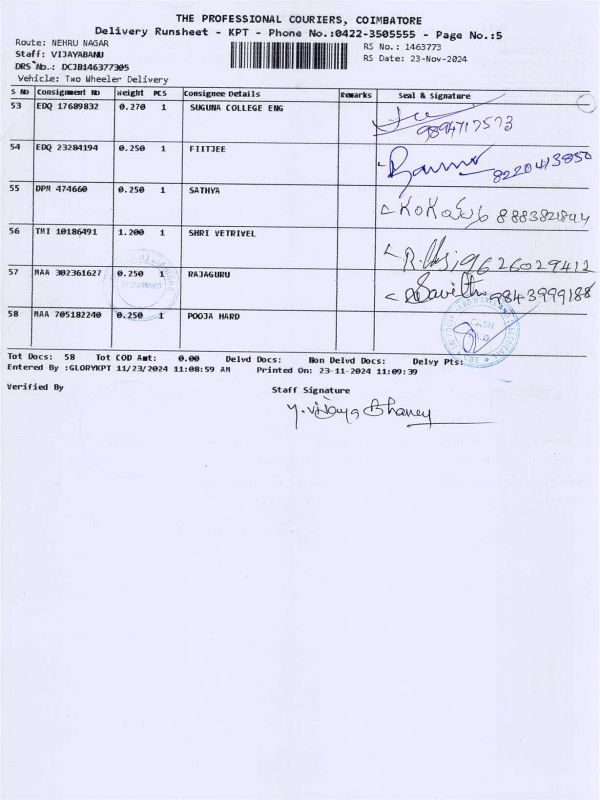 THE PROFESSIONAL COURIERS, COIMBATORE
Delivery Runsheet - KPT - Phone No.:0422-3505555 - Page No.:5
Route: NEHRU NAGAR RS No.: 1463773
Staff: VIJAYABANU RS Date: 23-Nov-2024
DRS No.: DCJB146377305
Vehicle: Two Wheeler Delivery
S No Consignment No Weight PCS Consignee Details Remarks Seal & Signature
53 EDQ 17689832 0.270 1 SUGUNA COLLEGE ENG
9894717573
54 EDQ 23284194 0.250 1 FIITJEE
8220413850
55 DPM 474660 0.250 1 SATHYA
56 TMI 10186491 1.200 1 SHRI VETRIVEL
9626029412
57 MAA 302361627 0.250 1 RAJAGURU
Savitha 9843999188
58 MAA 705182240 0.250 1 POOJA HARD
CASH
Tot Docs: 58 Tot COD Amt: 0.00 Delvd Docs: Non Delvd Docs: Delvy Pts:
Entered By :GLORYKPT 11/23/2024 11:08:59 AM Printed On: 23-11-2024 11:09:39
Verified By Staff Signature